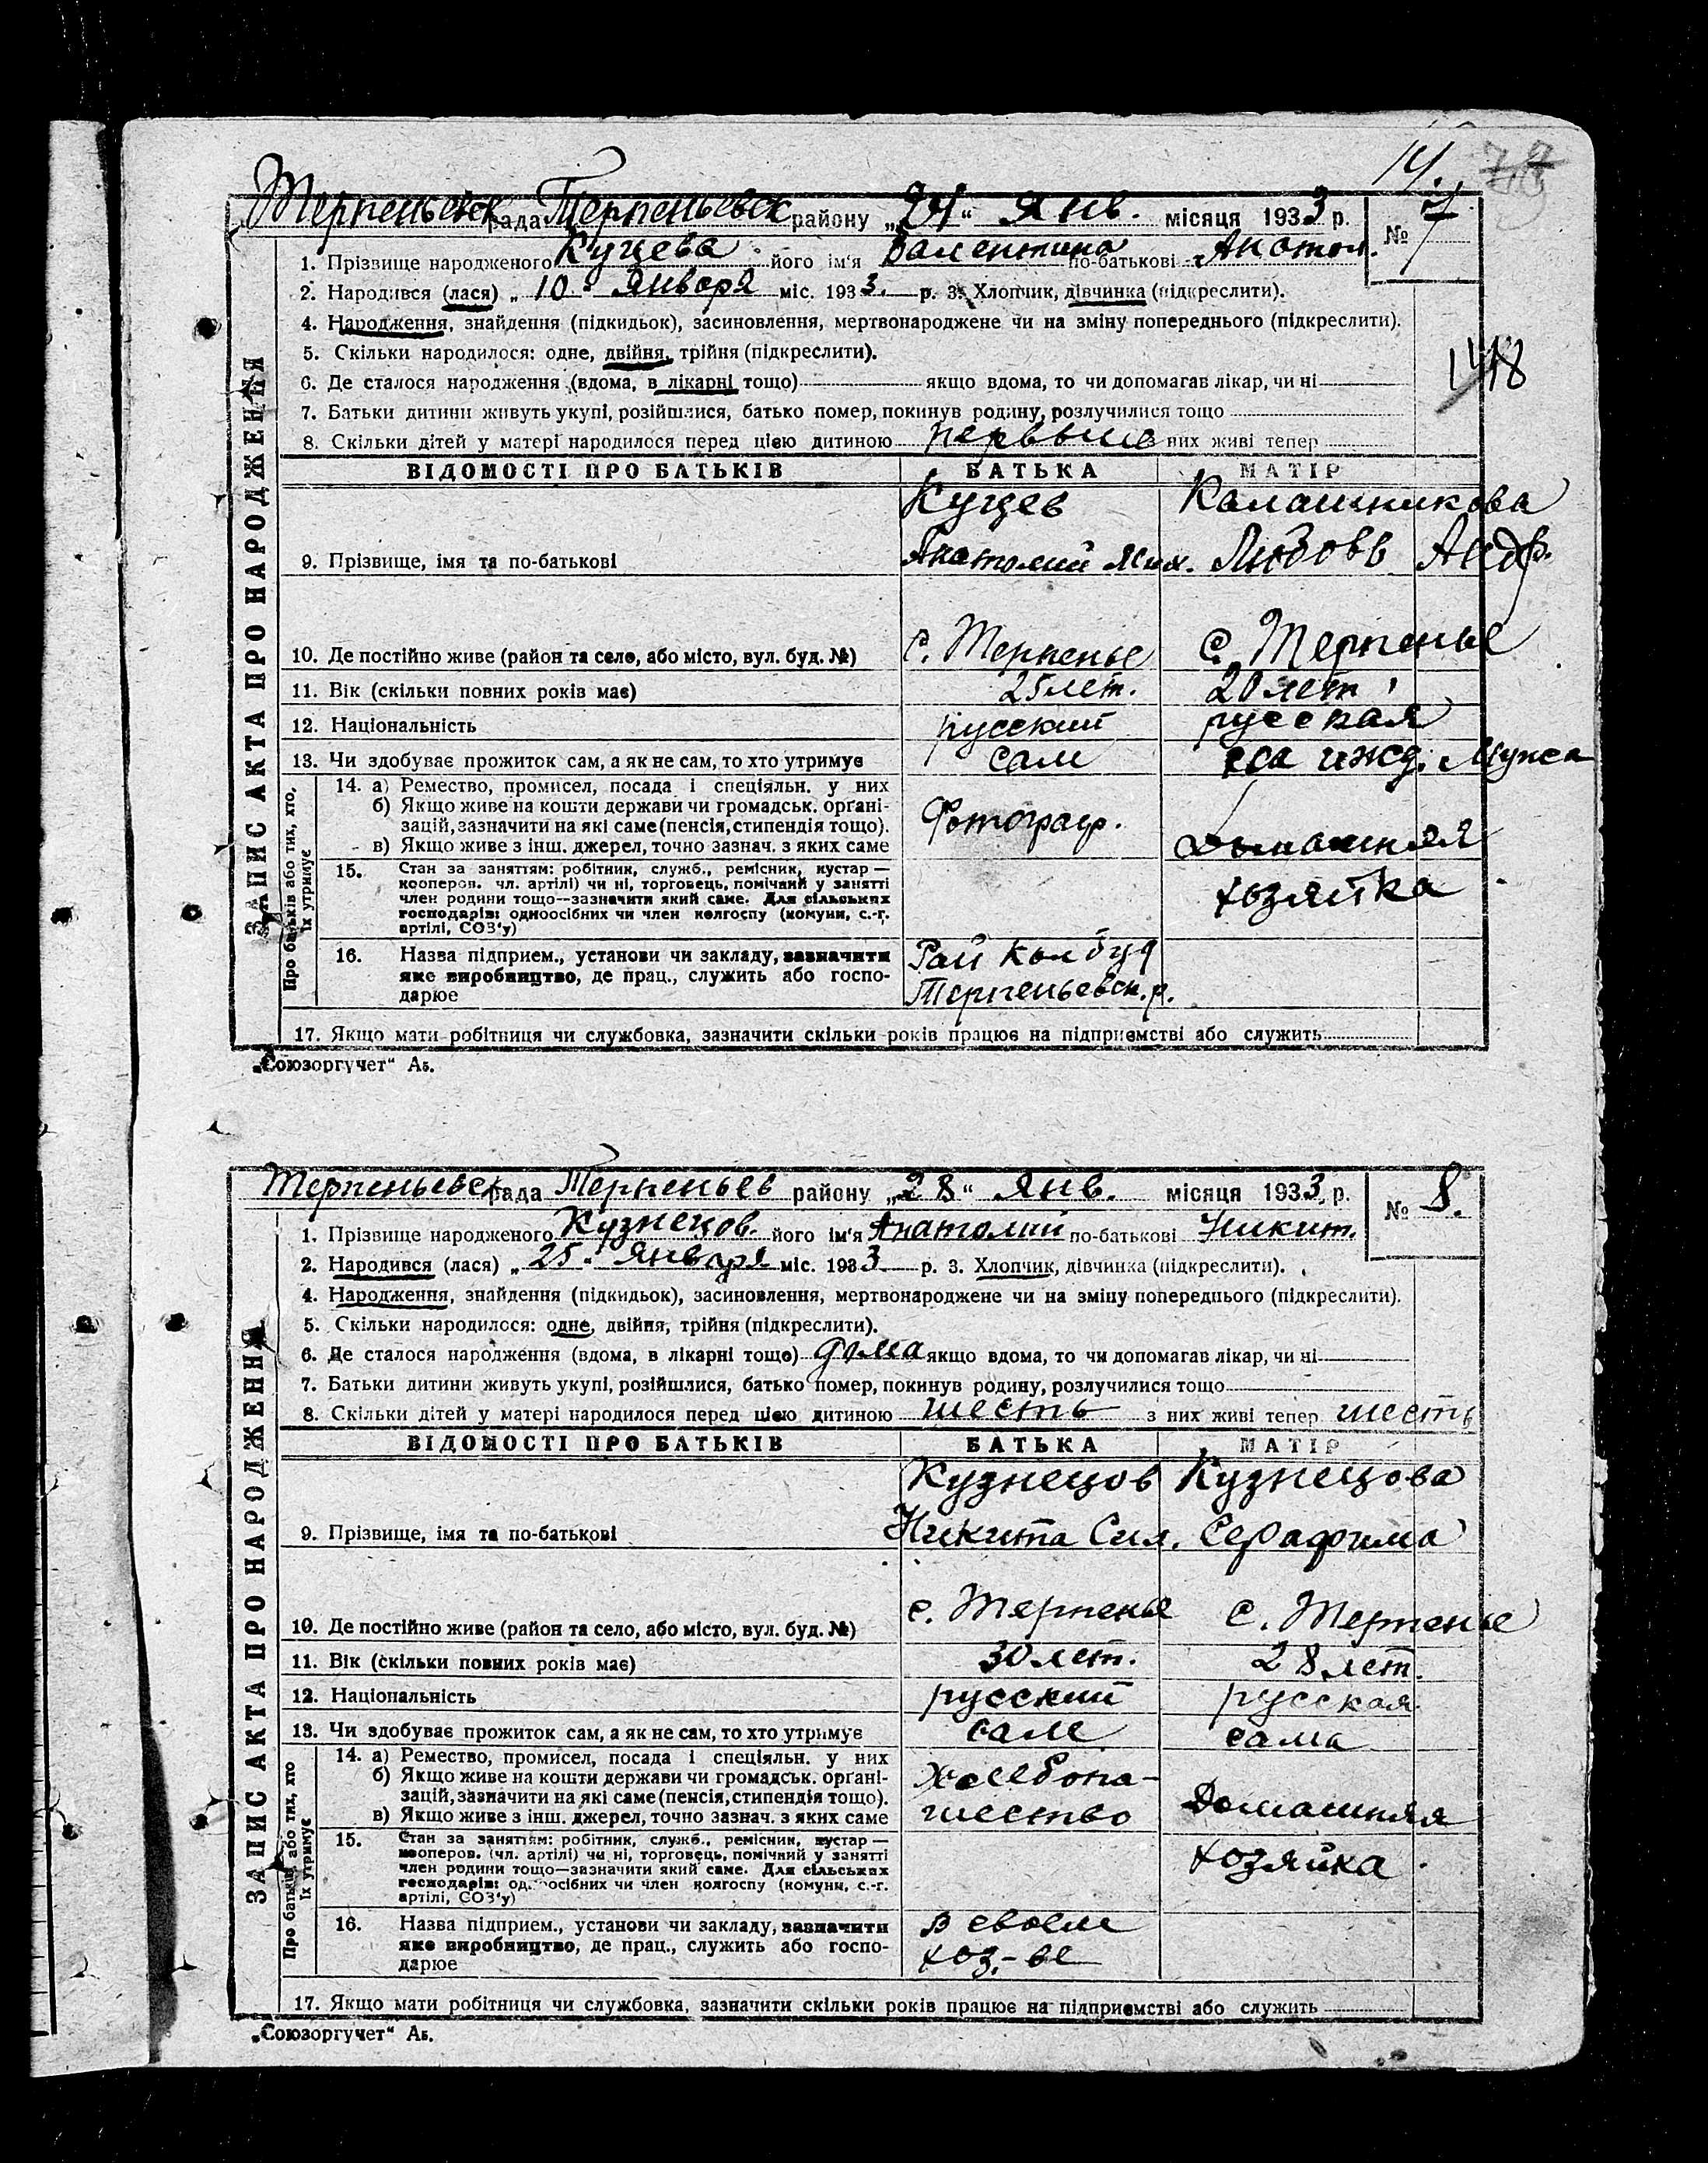 14.
Терпеньевск рада Терпеньевск району „24“ Янв. місяця 1933 р. № 7
1. Прізвище народженого Куцева його ім'я Валентина по-батькові Анатол.
2. Народився (лася) „10“ Января міс. 1933. р. 3. Хлопчик, дівчинка (підкреслити).
4. Народження, знайдення (підкидьок), засиновлення, мертвонароджене чи на зміну попереднього (підкреслити).
5. Скільки народилося: одне, двійня, трійня (підкреслити).
6. Де сталося народження (вдома, в лікарні тощо) якщо вдома, то чи допомагав лікар, чи ні
7. Батьки дитини живуть укупі, розійшлися, батько помер, покинув родину, розлучилися тощо
8. Скільки дітей у матері народилося перед цією дитиною первые з них живі тепер
ЗАПИС АКТА ПРО НАРОДЖЕННЯ
ВІДОМОСТІ ПРО БАТЬКІВ БАТЬКА МАТІР
Куцев Калашникова
9. Прізвище, імя та по-батькові Анатолий Мих. Любовь Андр.
10. Де постійно живе (район та село, або місто, вул. буд. №) с. Терпенье с. Терпенье
11. Вік (скільки повних років має) 25 лет. 20 лет
12. Національність русский русская
13. Чи здобуває прожиток сам, а як не сам, то хто утримує сам на ижд. Мужа
Про батьків або тих, хто їх утримує
14. а) Ремество, промисел, посада і спеціяльн. у них
б) Якщо живе на кошти держави чи громадськ. орґані-
зацій, зазначити на які саме (пенсія, стипендія тощо).
в) Якщо живе з інш. джерел, точно зазнач. з яких саме
Фотограф. Домашняя
хозяйка
15. Стан за заняттям: робітник, служб., ремісник, кустар —
кооперов. чл. артілі) чи ні, торговець, помічний у занятті
член родини тощо—зазначити який саме. Для сільських
господарів: одноосібних чи член колгоспу (комуни, с.-г.
артілі, СОЗ'у)
16. Назва підприєм., установи чи закладу, зазначити
яке виробництво, де прац., служить або госпо-
дарює
Рай Колбуд
Терпеньевск. р.
17. Якщо мати робітниця чи службовка, зазначити скільки років працює на підприємстві або служить
„Союзоргучет“ А5.
Терпеньевск рада Терпеньев району „28“ Янв. місяця 1933. р. № 8.
1. Прізвище народженого Кузнецов. його ім'я Анатолий по-батькові Никит.
2. Народився (лася) „25“ Января міс. 1933. р. 3. Хлопчик, дівчинка (підкреслити).
4. Народження, знайдення (підкидьок), засиновлення, мертвонароджене чи на зміну попереднього (підкреслити).
5. Скільки народилося: одне, двійня, трійня (підкреслити).
6. Де сталося народження (вдома, в лікарні тощо) дома якщо вдома, то чи допомагав лікар, чи ні
7. Батьки дитини живуть укупі, розійшлися, батько помер, покинув родину, розлучилися тощо
8. Скільки дітей у матері народилося перед цією дитиною шесть з них живі тепер шесть
ЗАПИС АКТА ПРО НАРОДЖЕННЯ
ВІДОМОСТІ ПРО БАТЬКІВ БАТЬКА МАТІР
Кузнецов Кузнецова
9. Прізвище, імя та по-батькові Никита Сил. Серафима
10. Де постійно живе (район та село, або місто, вул. буд. №) с. Терпенье с. Терпенье
11. Вік (скільки повних років має) 30 лет. 28 лет.
12. Національність русский русская
13. Чи здобуває прожиток сам, а як не сам, то хто утримує сам сама
Про батьків або тих, хто їх утримує
14. а) Ремество, промисел, посада і спеціяльн. у них
б) Якщо живе на кошти держави чи громадськ. орґані-
зацій, зазначити на які саме (пенсія, стипендія тощо).
в) Якщо живе з інш. джерел, точно зазнач. з яких саме
Хлебопа-
шество Домашняя
хозяйка
15. Стан за заняттям: робітник, служб., ремісник, кустар —
кооперов. (чл. артілі) чи ні, торговець, помічний у занятті
член родини тощо—зазначити який саме. Для сільських
господарів: одноосібних чи член колгоспу (комуни, с.-г.
артілі, СОЗ'у)
16. Назва підприєм., установи чи закладу, зазначити
яке виробництво, де прац., служить або госпо-
дарює
В своем
хоз,-ве
17. Якщо мати робітниця чи службовка, зазначити скільки років працює на підприємстві або служить
„Союзоргучет“ А5.